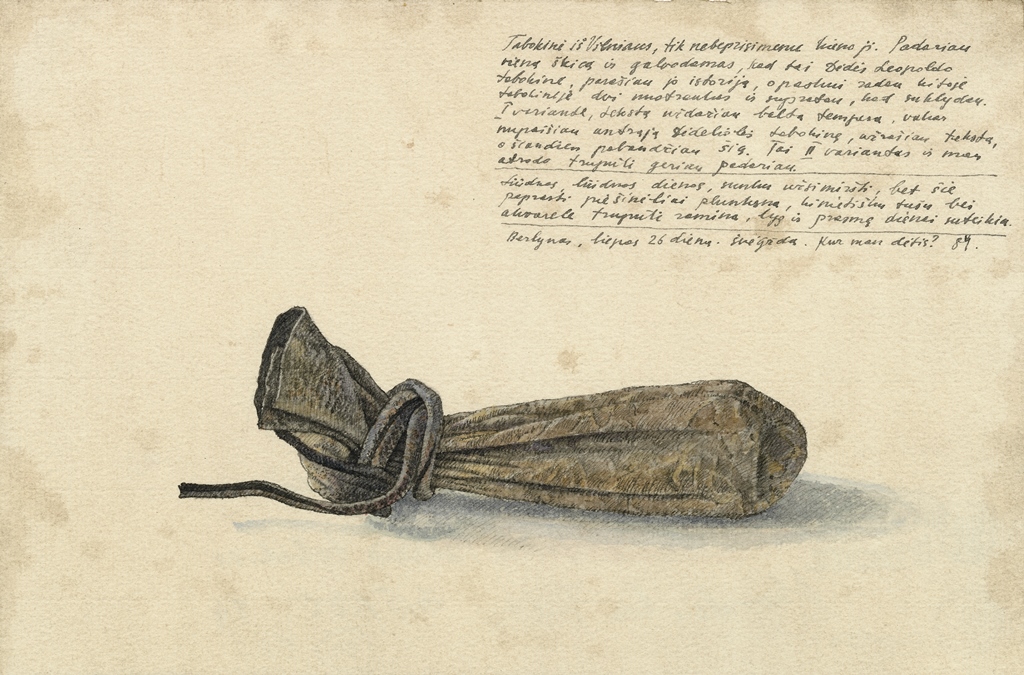 Tabokinė iš Vilniaus, tik nebeprisimenu kieno ji. Padariau
vieną škicą ir galvodamas, kad tai Dėdės Leopoldo
tabokinė, parašiau jo istoriją, o paskui radau kitoje
tabokinėje dvi nuotraukas ir supratau, kad suklydau.
I variantė, tekstą uždažiau balta tempera, vakar
nupaišiau antrąją didelės tabokinę, užrašiau tekstą,
o šiandien pabandžiau šią. Tai II variantas ir man
atrodo truputi geriau padariau.
Liūdnos, liūdnos dienos, sunku užsimiršti, bet šie
paprasti piešinėliai plunksna, kinietišku tušu bei
akvarele truputi ramina, lyg ir prasmę dienai suteikia.
Berlynas, liepos 26 diena. Švėgžda. Kur man dėtis? 84.